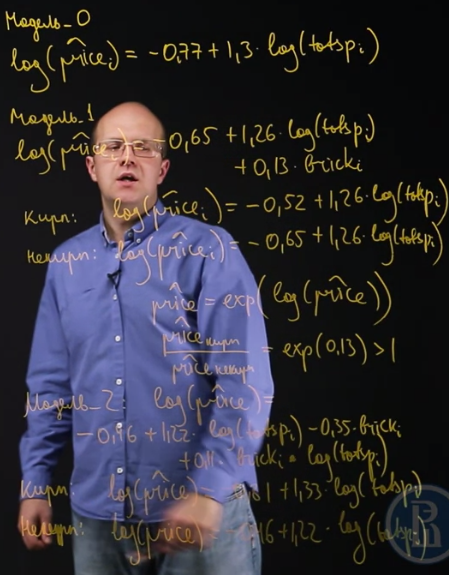 Модель_0
log(price^i) = -0,77 + 1,3 · log(totspi)
Модель_1
log(price^) = -0,65 + 1,26 · log(totspi)
+ 0,13 · bricki
Кирп: log(price^i) = -0,52 + 1,26 · log(totspi)
Некирп: log(price^i) = -0,65 + 1,26 · log(totspi)
price^ = exp(log(price^))
price^кирп / price^некирп = exp(0,13) > 1
Модель_2 log(price^) =
+ 1,22 · log(totspi) - 0,35 · bricki
+ 0,11 · bricki · log(totspi)
Кирп: log(price^) + 1,33 · log(totspi)
Некирп: log(price^) + 1,22 · log(totspi)